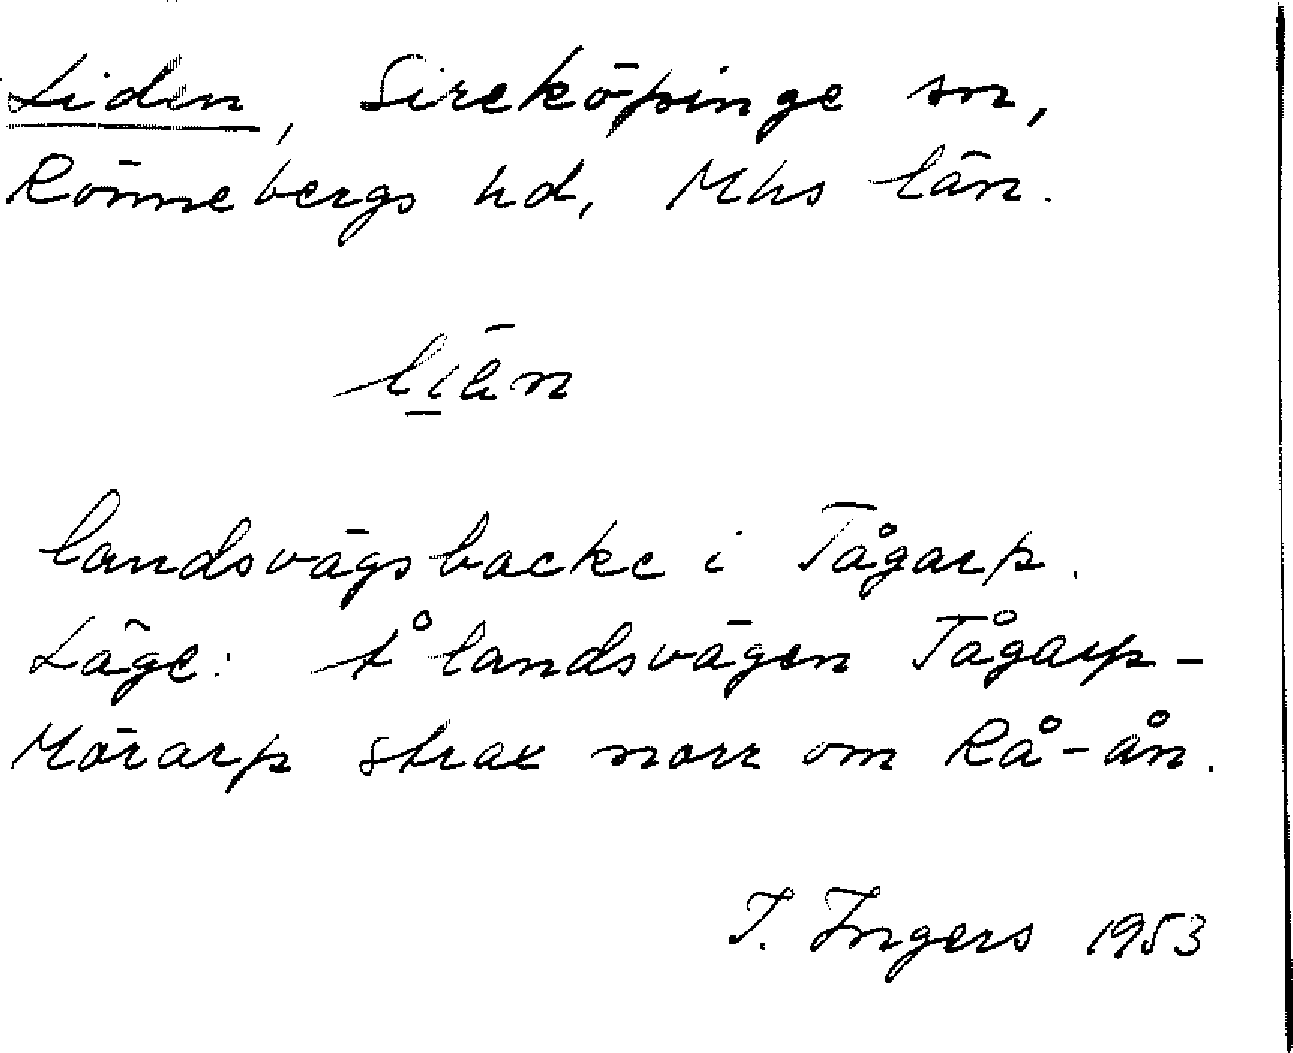 Liden, Sireköpinge sn,
Rönnebergs hd, Mhs län.
landsvägsbacke i Tågarp.
Läge: å landsvägen Tågarp-
Mörarp strax norr om Rå-ån.
I. Ingers 1953